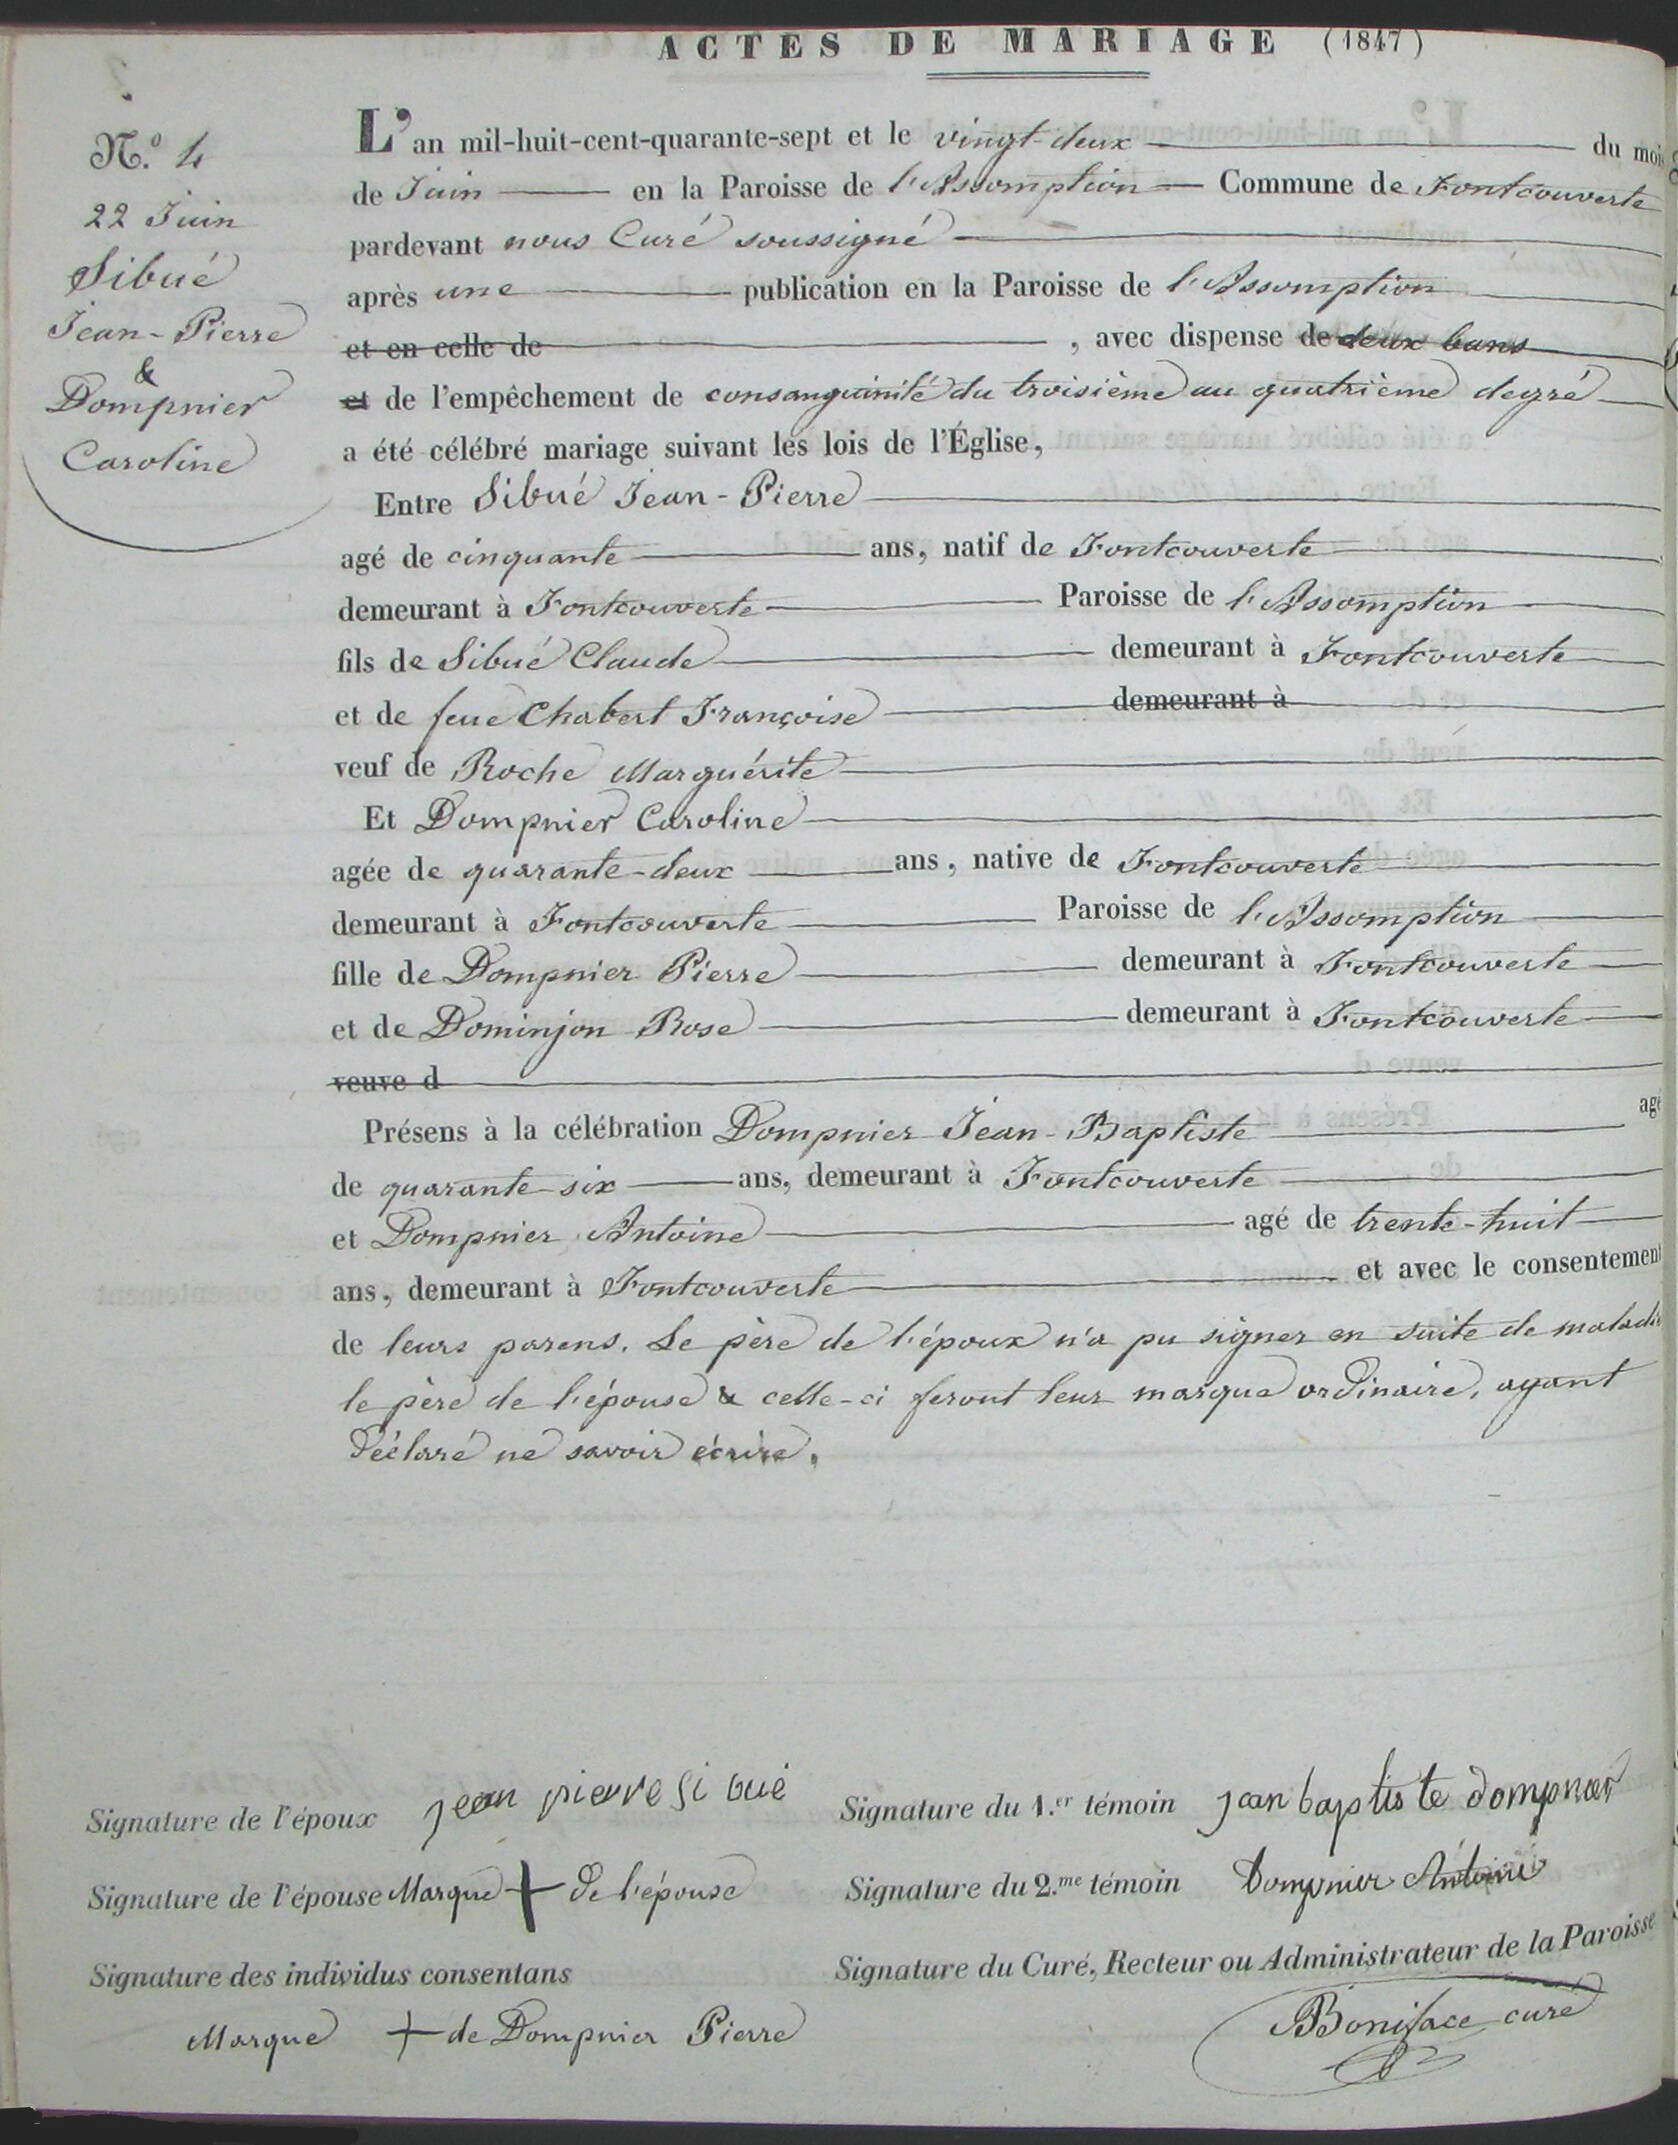 ACTES DE MARIAGE (1847)
N.o 4
22 Juin
Sibué
Jean-Pierre
&
Dompnier
Caroline
L'an mil-huit-cent-quarante-sept et le vingt-deux du mois
de Juin en la Paroisse de l'Assomption Commune de Fontcouverte
pardevant nous Curé soussigné
après une publication en la Paroisse de l'Assomption
et en celle de , avec dispense de deux bans
et de l'empêchement de consanguinité du troisième au quatrième degré
a été célébré mariage suivant les lois de l'Église,
Entre Sibué Jean-Pierre
agé de cinquante ans, natif de Fontcouverte
demeurant à Fontcouverte Paroisse de l'Assomption
fils de Sibué Claude demeurant à Fontcouverte
et de feue Chabert Françoise demeurant à
veuf de Roche Marguérite
Et Dompnier Caroline
agée de quarante-deux ans, native de Fontcouverte
demeurant à Fontcouverte Paroisse de l'Assomption
fille de Dompnier Pierre demeurant à Fontcouverte
et de Dominjon Rose demeurant à Fontcouverte
veuve d
Présens à la célébration Dompnier Jean-Baptiste agé
de quarante-six ans, demeurant à Fontcouverte
et Dompnier Antoine agé de trente-huit
ans, demeurant à Fontcouverte et avec le consentement
de leurs parens. Le père de l'époux n'a pu signer en suite de maladie
le père de l'épouse & celle-ci feront leur marque ordinaire, ayant
déclaré ne savoir écrire.
Signature de l'époux jean pierre si bué
Signature du 1.er témoin jean baptiste dompnier
Signature de l'épouse Marque + de l'épouse
Signature du 2.me témoin Dompnier Antoine
Signature des individus consentans
Signature du Curé, Recteur ou Administrateur de la Paroisse
Marque + de Dompnier Pierre
Boniface curé